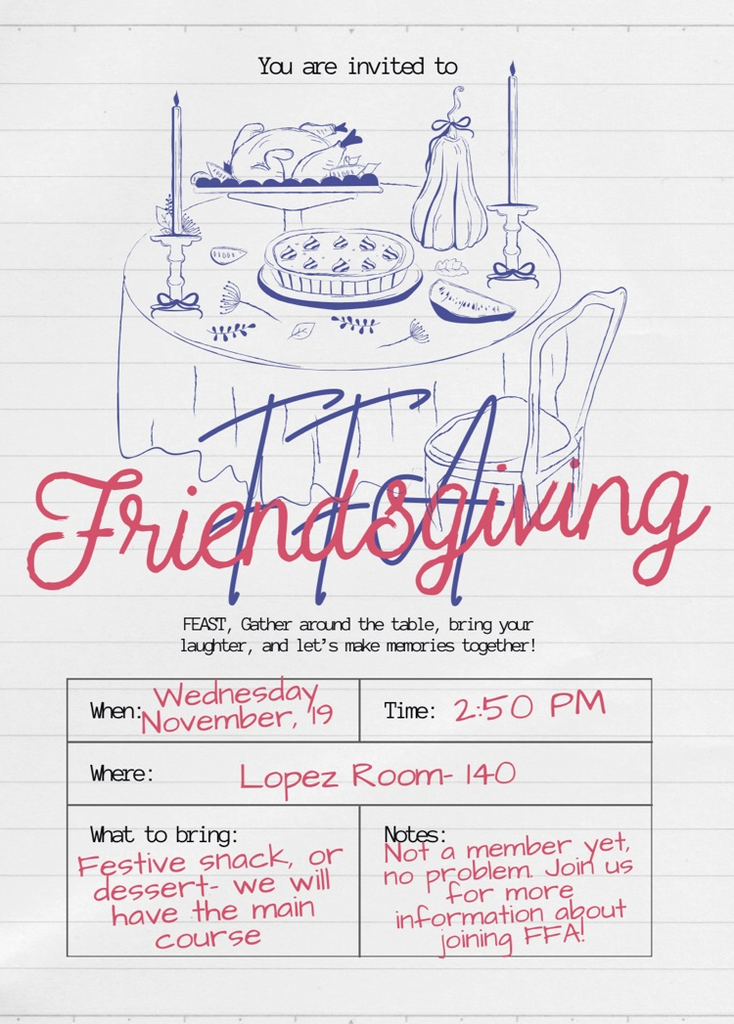 You are invited to
FFA
Friendsgiving
FEAST, Gather around the table, bring your
laughter, and let's make memories together!
When: Wednesday
November, 19
Time: 2:50 PM
Where: Lopez Room- 140
What to bring:
Festive snack, or
dessert- we will
have the main
course
Notes:
Not a member yet,
no problem. Join us
for more
information about
joining FFA!